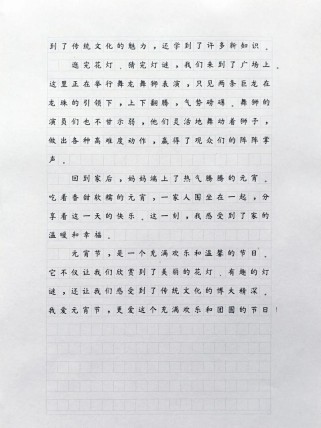 到了传统文化的魅力，还学到了许多新知识。
逛完花灯、猜完灯谜，我们来到了广场上。
这里正在举行舞龙舞狮表演，只见两条巨龙在
龙珠的引领下，上下翻腾，气势磅礴。舞狮的
演员们也不甘示弱，他们灵活地舞动着狮子，
做出各种高难度动作，赢得了观众们的阵阵掌
声。
回到家后，妈妈端上了热气腾腾的元宵。
吃着香甜软糯的元宵，一家人围坐在一起，分
享着这一天的快乐。这一刻，我感受到了家的
温暖和幸福。
元宵节，是一个充满欢乐和温馨的节日。
它不仅让我们欣赏到了美丽的花灯、有趣的灯
谜，还让我们感受到了传统文化的博大精深。
我爱元宵节，更爱这个充满欢乐和团圆的节日！